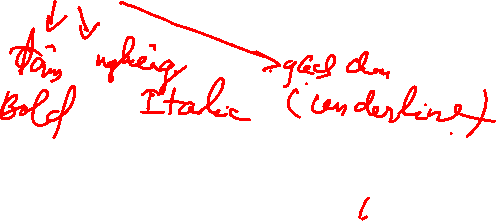 đậm nghiêng gạch dưới
Bold Italic (underline)